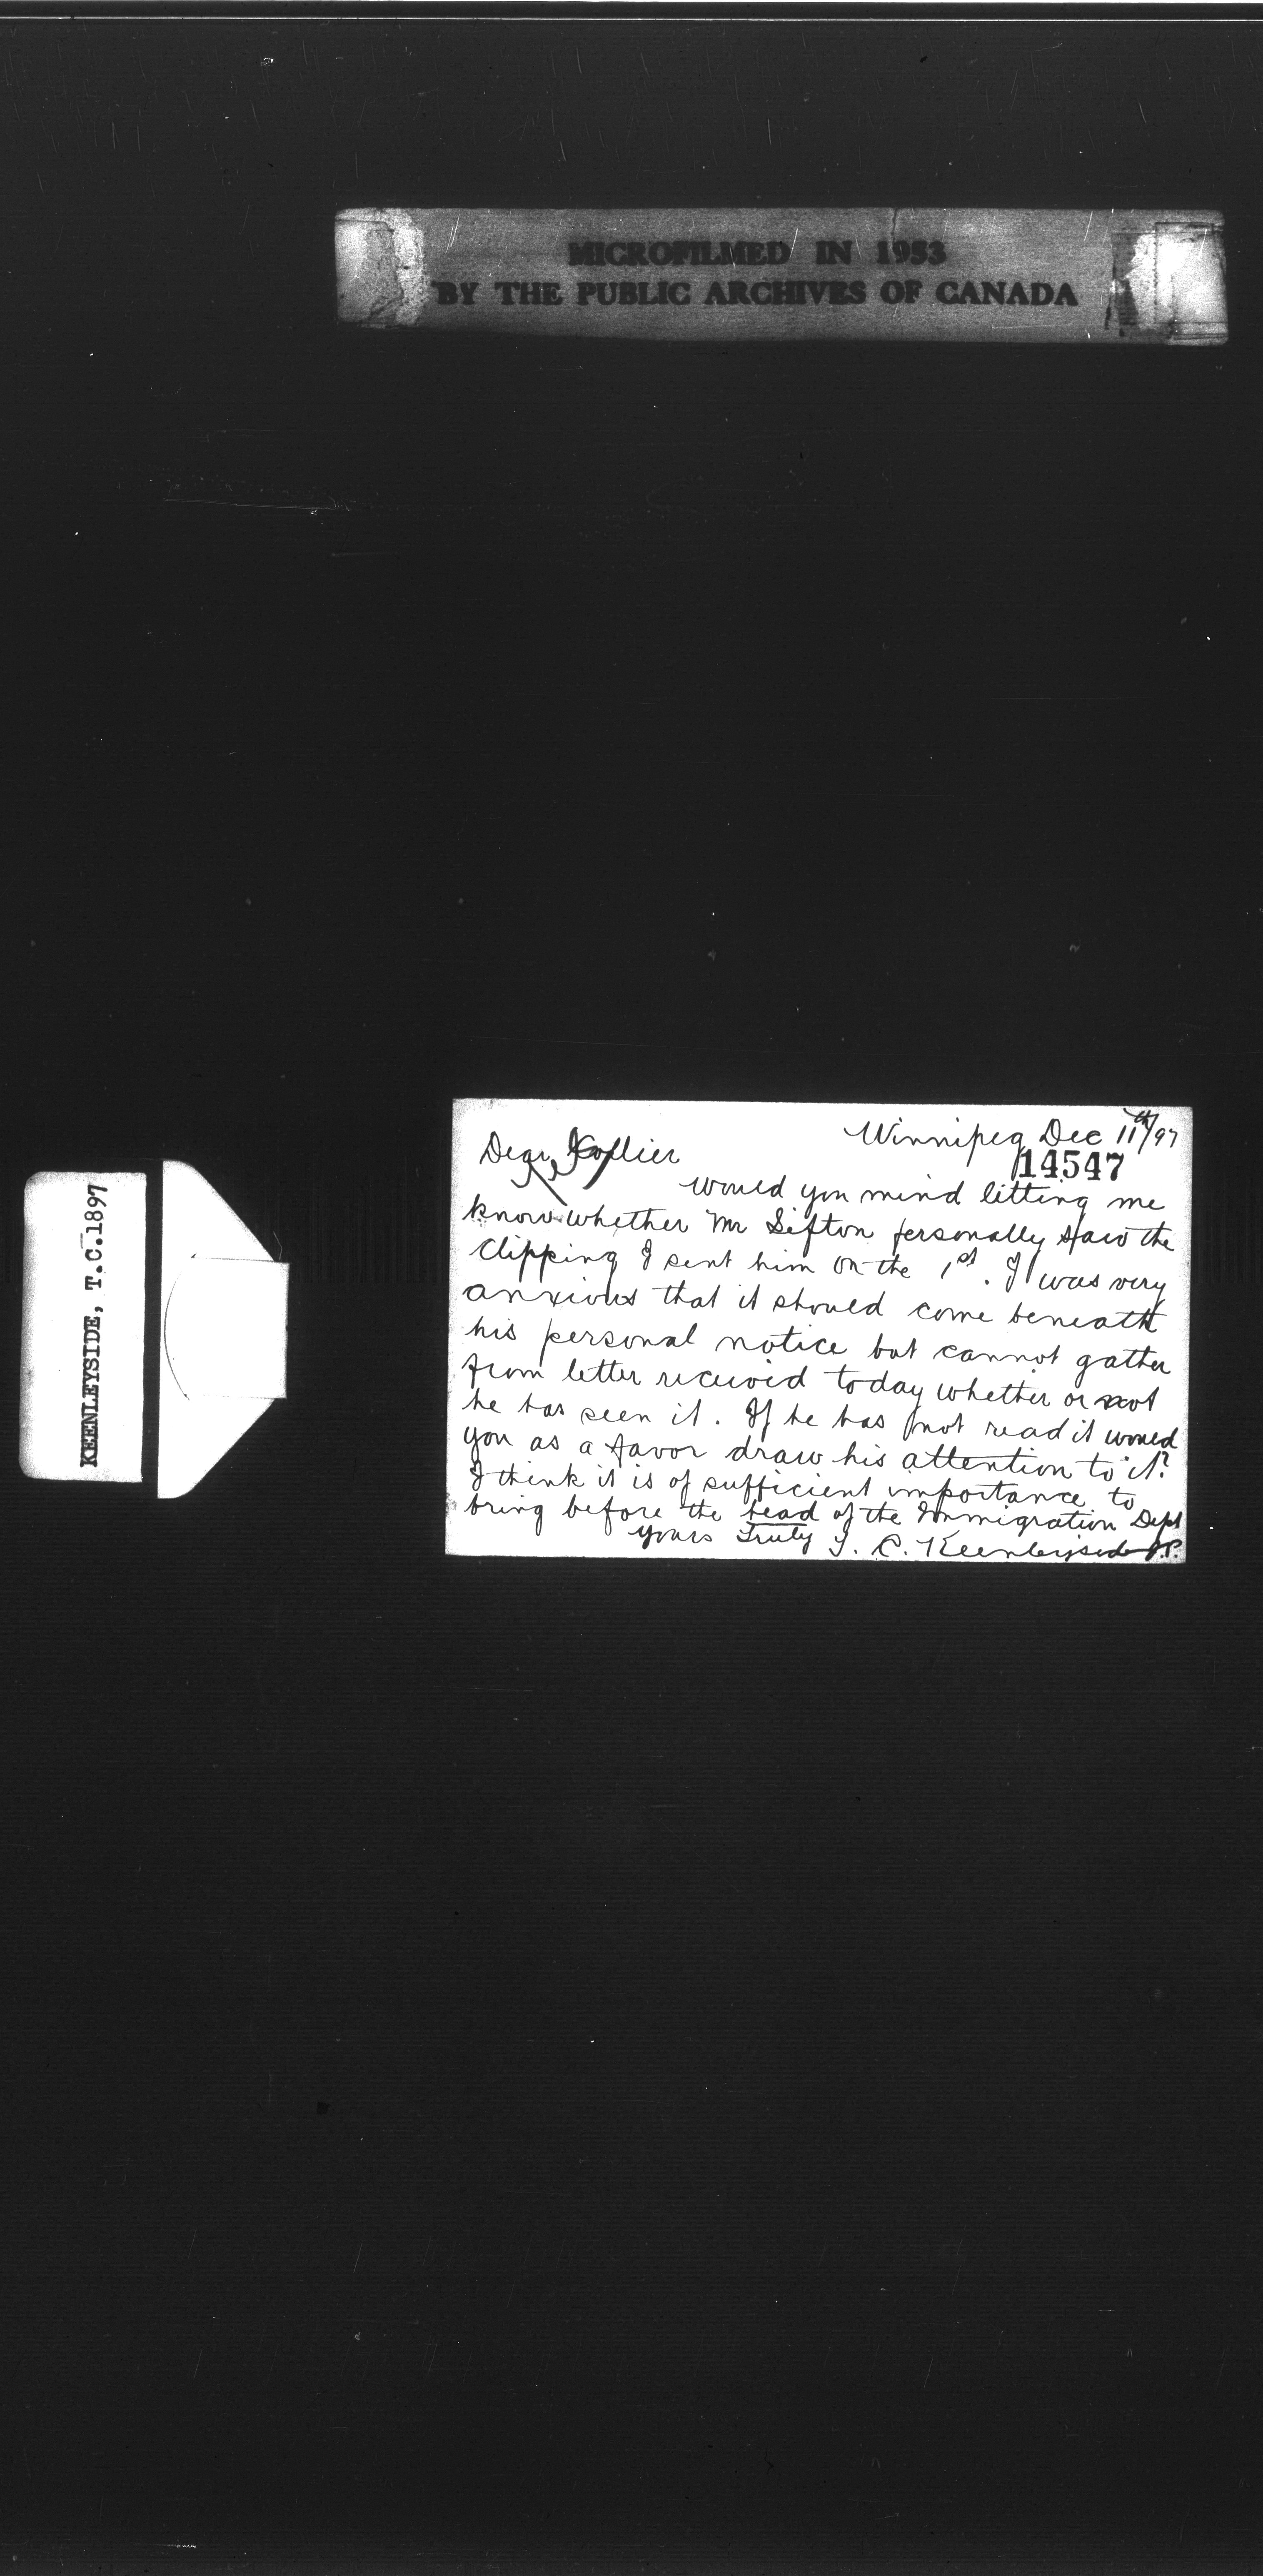 MICROFILMED IN 1953
BY THE PUBLIC ARCHIVES OF CANADA
KEENLEYSIDE, T.C. 1897
Winnipeg Dec 11th/97
14547
Dear Collier
Would you mind letting me
know whether Mr Sifton personally saw the
clipping I sent him on the 1st. I was very
anxious that it should come beneath
his personal notice but cannot gather
from letter received today whether or not
he has seen it. If he has not read it would
you as a favor draw his attention to it?
I think it is of sufficient importance to
bring before the head of the Immigration Dept
Yours Truly T. C. Keenleyside